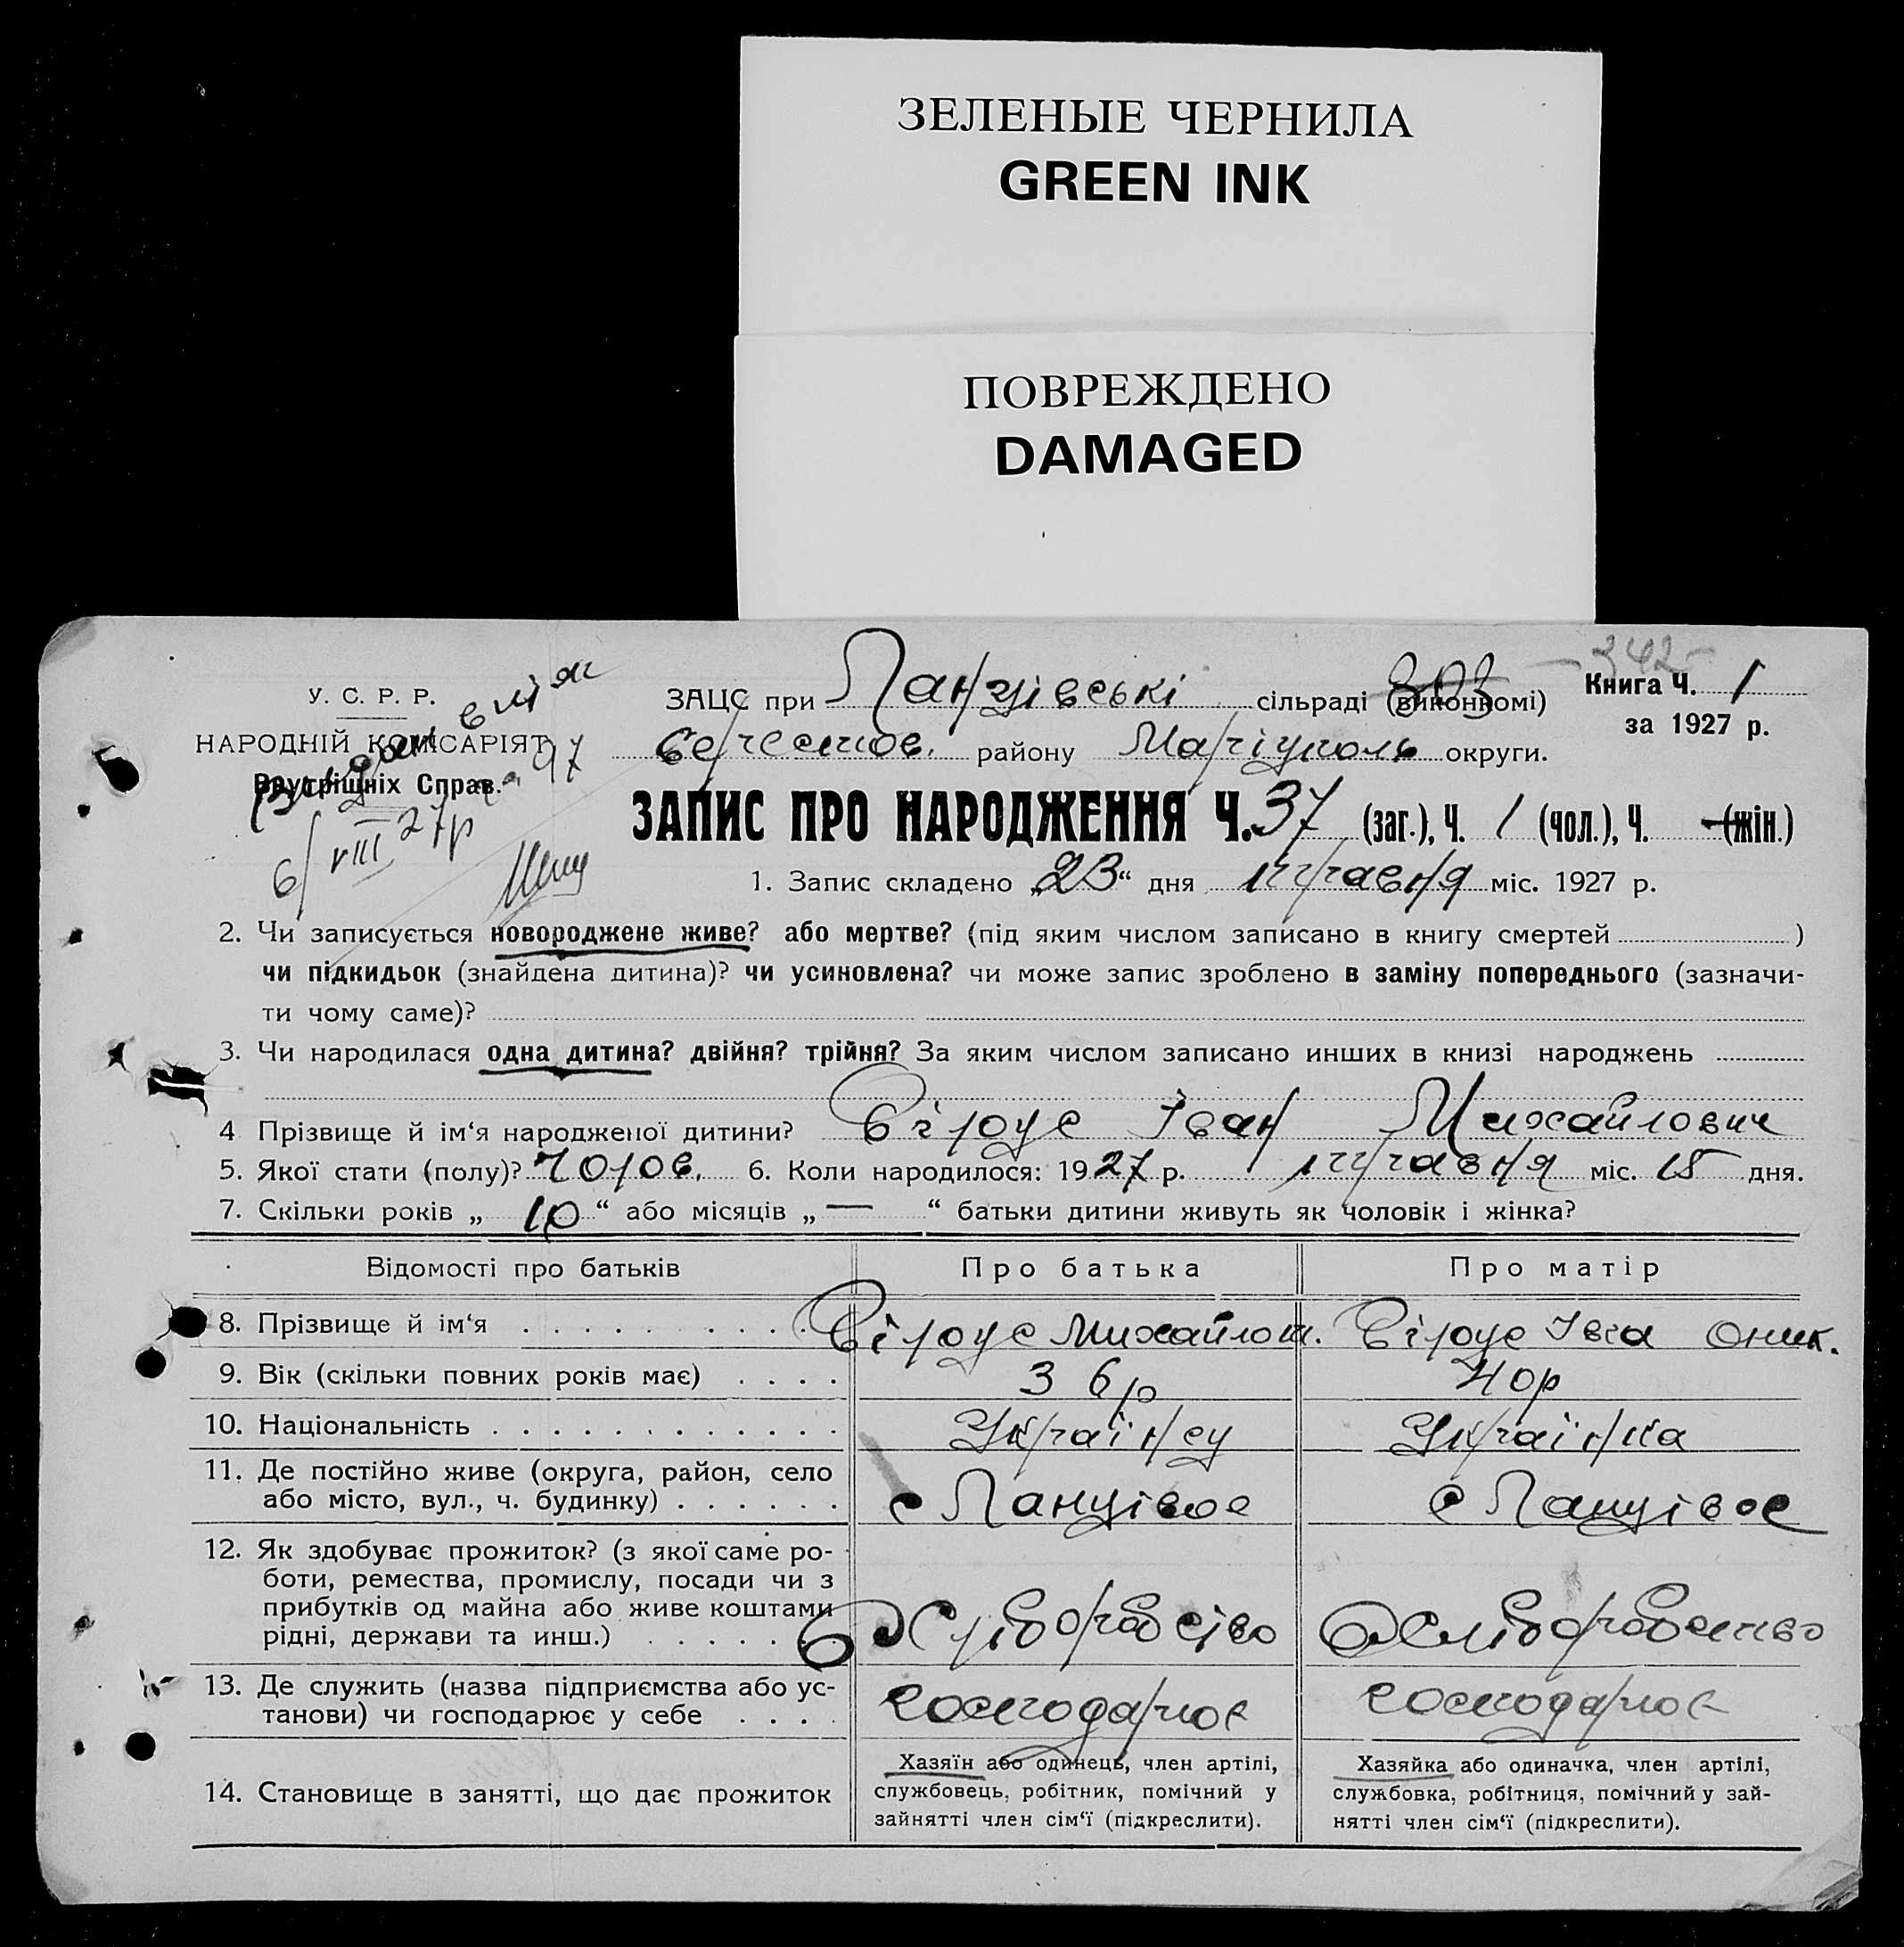 ЗЕЛЕНЫЕ ЧЕРНИЛА
GREEN INK
ПОВРЕЖДЕНО
DAMAGED
У. С. Р. Р.
НАРОДНІЙ КОМІСАРІЯТ
Внутрішніх Справ.
6/VIII 27р
ЗАЦС при Ланцівські сільраді (виконкомі)
303
342
Книга Ч. 1
за 1927 р.
району Маріуполь округи.
ЗАПИС ПРО НАРОДЖЕННЯ Ч. 37 (заг.), Ч. 1 (чол.), Ч. — (жін.)
1. Запис складено „23“ дня травня міс. 1927 р.
2. Чи записується новороджене живе? або мертве? (під яким числом записано в книгу смертей )
чи підкидьок (знайдена дитина)? чи усиновлена? чи може запис зроблено в заміну попереднього (зазначи-
ти чому саме)?
3. Чи народилася одна дитина? двійня? трійня? За яким числом записано инших в книзі народжень
4 Прізвище й ім‘я народженої дитини? Іван Михайлович
5. Якої стати (полу)? Чолов. 6. Коли народилося: 1927 р. травня міс. 15 дня.
7. Скільки років „ 10 “ або місяців „ — “ батьки дитини живуть як чоловік і жінка?
Відомості про батьків Про батька Про матір
8. Прізвище й ім‘я
9. Вік (скільки повних років має) 36р 40р
10. Національність Українец Українка
11. Де постійно живе (округа, район, село
або місто, вул., ч. будинку) с Ланцівое с Ланцівое
12. Як здобуває прожиток? (з якої саме ро-
боти, ремества, промислу, посади чи з
прибутків од майна або живе коштами
рідні, держави та инш.) Хліборобство Хліборобство
13. Де служить (назва підприємства або ус-
танови) чи господарює у себе господарює господарює
14. Становище в занятті, що дає прожиток
Хазяїн або одинець, член артілі,
службовець, робітник, помічний у
зайнятті член сім‘ї (підкреслити).
Хазяйка або одиначка, член артілі,
службовка, робітниця, помічний у зай-
нятті член сім‘ї (підкреслити).